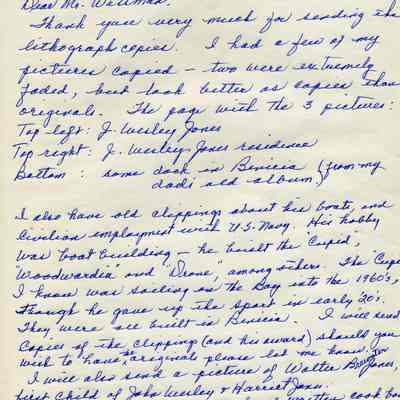 Dear Mr. Wellman.
Thank you very much for sending the
lithograph copies. I had a few of my
pictures copied — two were extremely
faded, but look better as copies than
originals. The page with the 3 pictures:
Top left: J. Wesley Jones
Top right: J. Wesley Jones residence
Bottom: some dock in Benicia (from my
dads old album)
I also have old clippings about his boats, and
civilian employment with U.S. Navy. His hobby
was boat building — he built the "Cupid",
"Woodwardia" and "Drone", among others. The "Cupi
I know was sailing on the Bay into the 1960's,
though he gave up the sport in early 20's.
They were all built in Benicia. I will send
copies of the clipping (and his award) should you
wish to have the original please let me know.
I will also send a picture of Walter Jones,
first child of John Wesley & Harriet Jones.